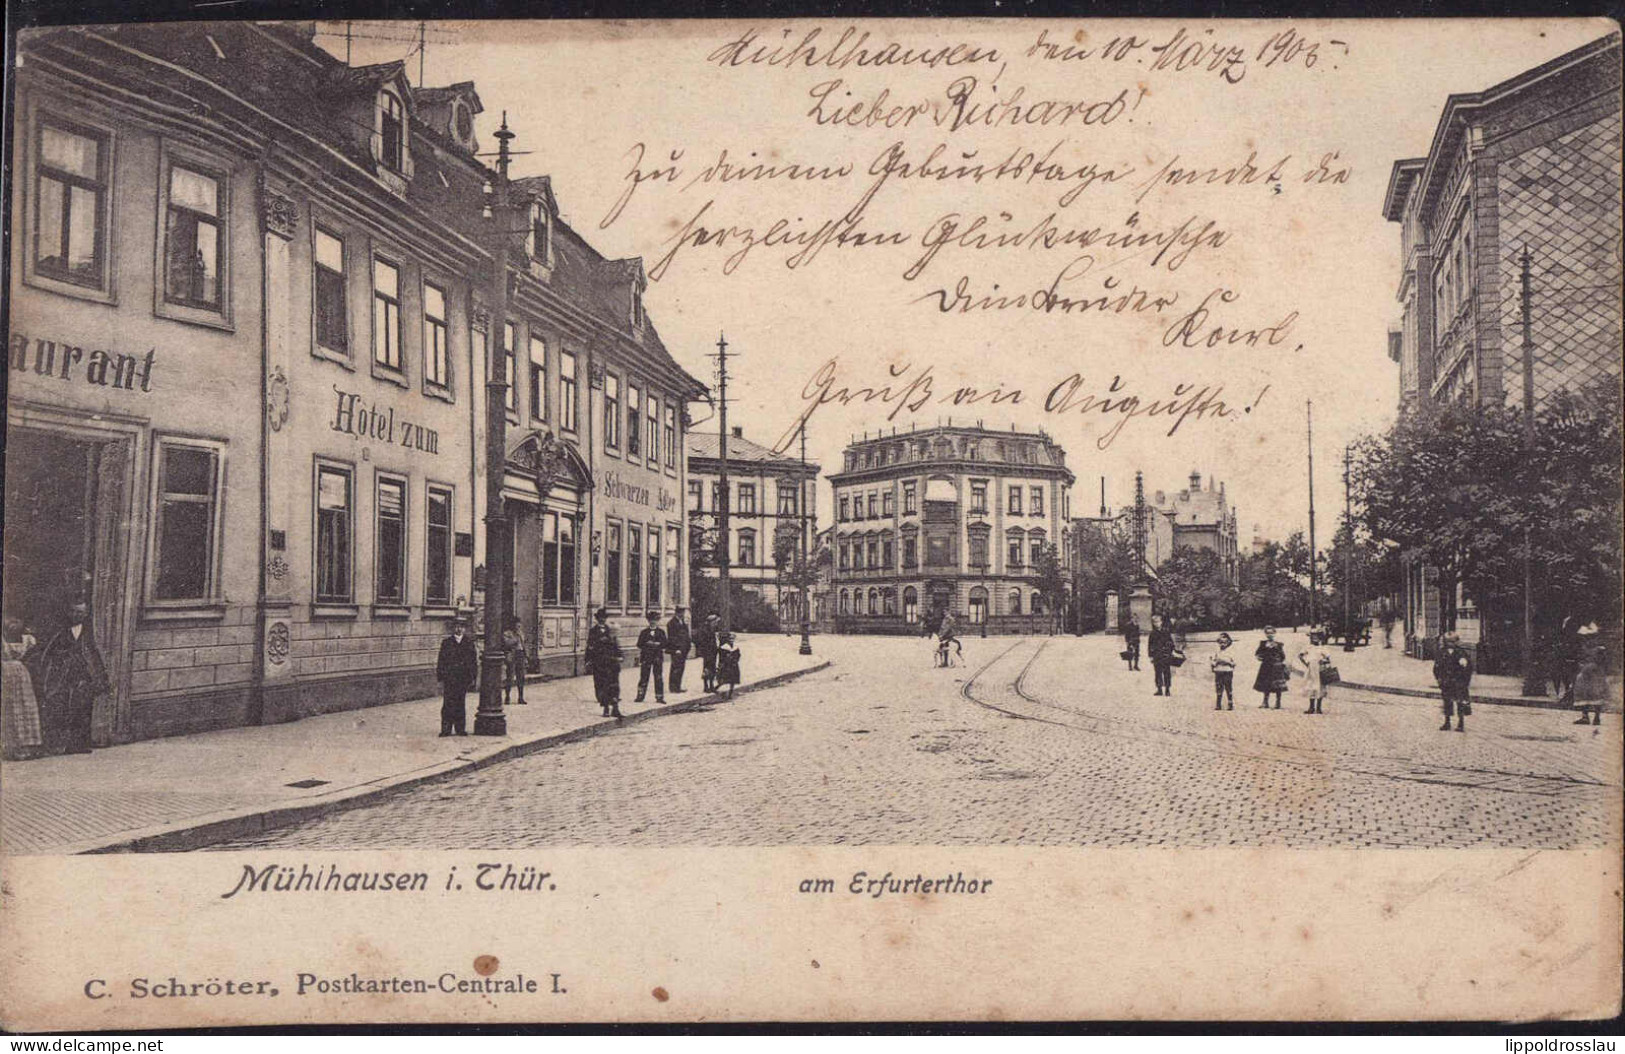 Mühlhausen, den 10. März 1905.
Lieber Richard!
Zu deinem Geburtstage sendet die
herzlichsten Glückwünsche
Dein Bruder
Karl.
Gruß an Auguste!
aurant
Hotel zum
Schwarzen Adler
Mühlhausen i. Thür.
am Erfurterthor
C. Schröter, Postkarten-Centrale I.
delcampe.net
lippoldrosslau